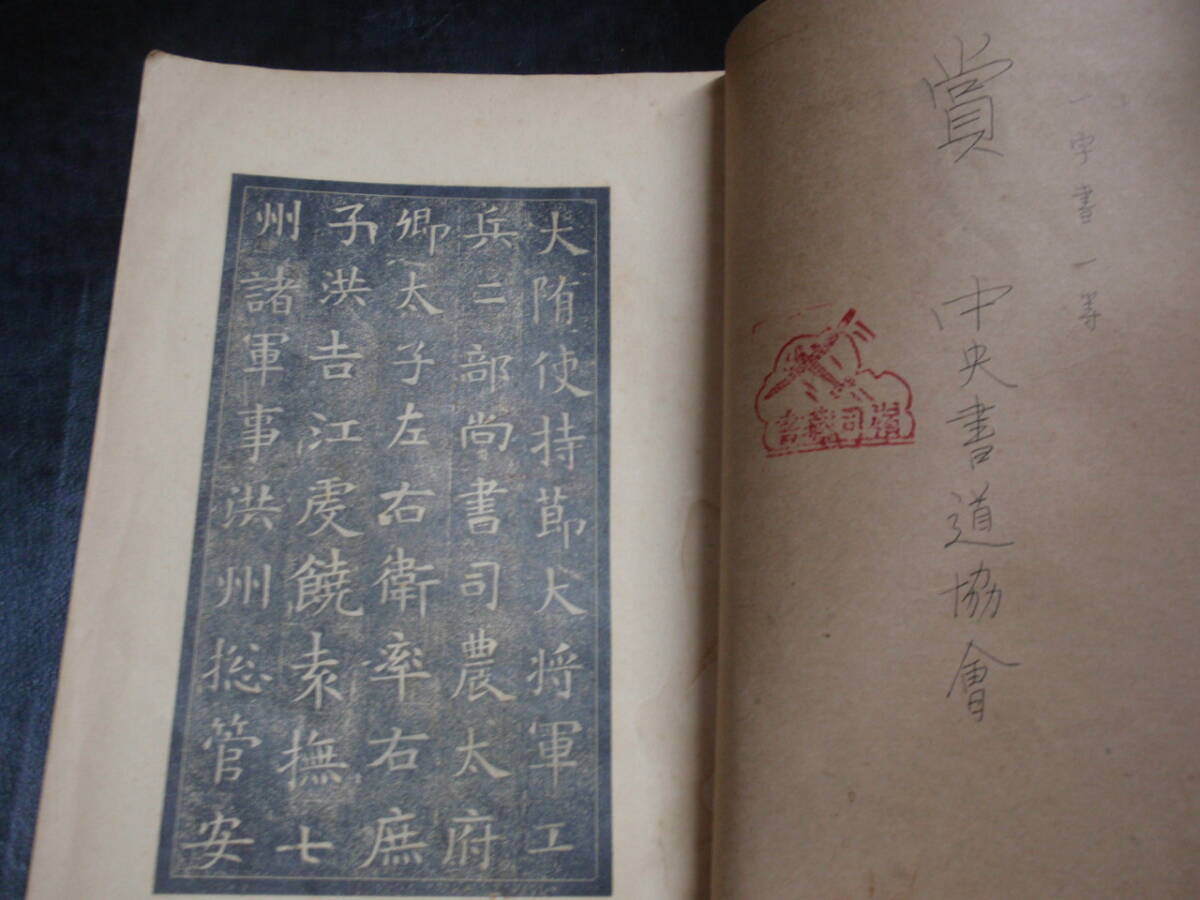 一字書一等
賞　中央書道協會
大隋使持節大将軍工
兵二部尚書司農太府
卿太子左右衛率右庶
子洪吉江虔饒袁撫七
州諸軍事洪州総管安